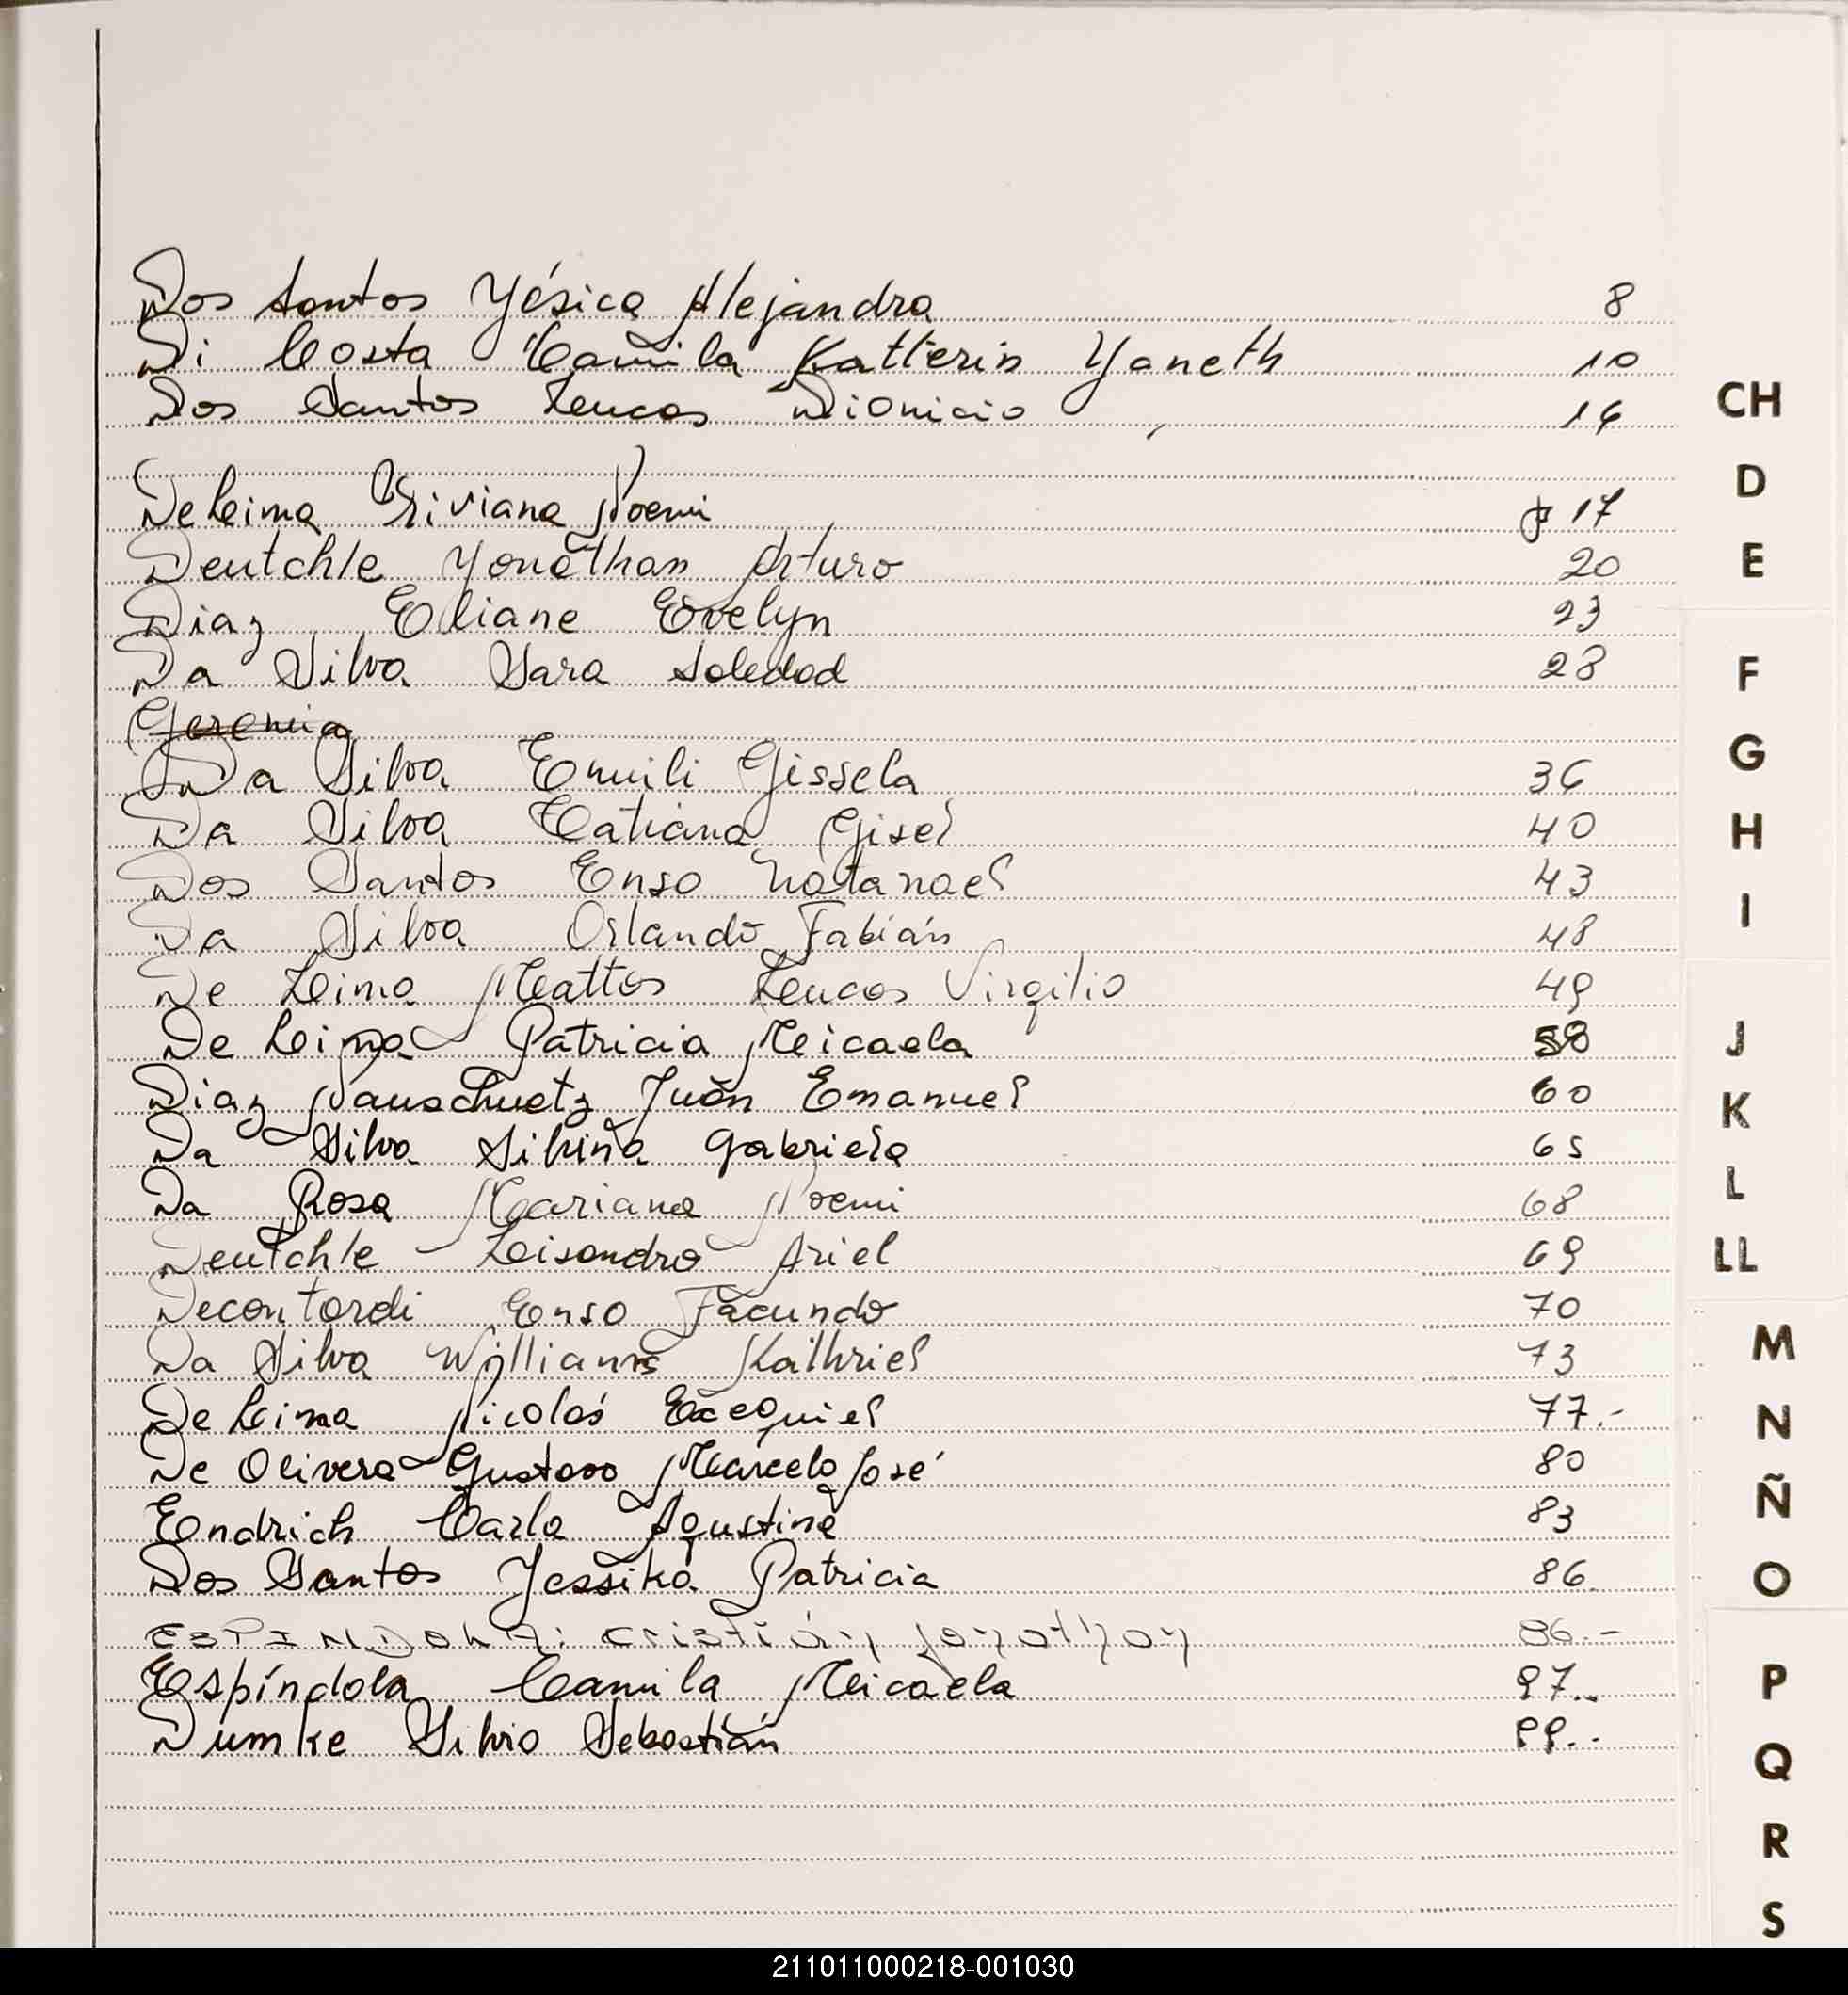 Dos Santos Yésica Alejandra 8
Di Costa Camila Katterin Yaneth 10
Dos Santos Lucas Dionicio 16
De Lima Viviana Noemi 17
Deutchle Yonathan Arturo 20
Diaz Eliane Evelyn 23
Da Silva Sara Soledad 28
Geremia
Da Silva Emili Gissela 36
Da Silva Tatiana Gisel 40
Dos Santos Enso Natanael 43
Da Silva Orlando Fabián 48
De Lima Mattos Lucas Virgilio 49
De Lima Patricia Micaela 58
Diaz Juan Emanuel 60
Da Silva Silvina Gabriela 65
Da Rosa Mariana Noemi 68
Deutchle Lisandro Ariel 69
Decontardi Enso Facundo 70
Da Silva Willians Kathriel 73
De Lima Nicolás Exequiel 77.-
De Olivera Gustavo Marcelo José 80
Endrich Carla Agustina 83
Dos Santos Jessika Patricia 86
ESPINDOLA: Cristián Jonathan 96.-
Espíndola Camila Micaela 97..
Dumke Silvio Sebastián 99..
CH
D
E
F
G
H
I
J
K
L
LL
M
N
Ñ
O
P
Q
R
S
211011000218-001030